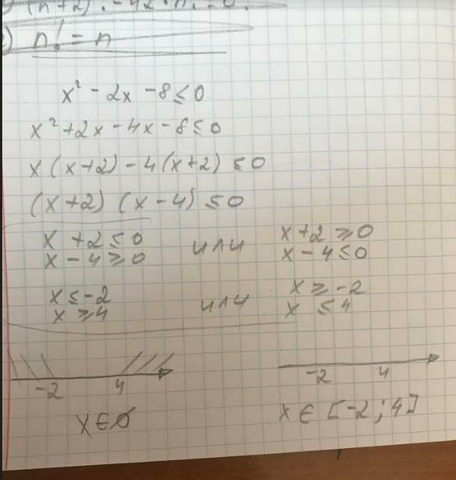 (n+2)! - 42 · n! = 0.
) n! = n
x² - 2x - 8 ≤ 0
x² + 2x - 4x - 8 ≤ 0
x (x+2) - 4(x+2) ≤ 0
(x+2) (x-4) ≤ 0
x + 2 ≤ 0
x - 4 ≥ 0
или
x + 2 ≥ 0
x - 4 ≤ 0
x ≤ -2
x ≥ 4
или
x ≥ -2
x ≤ 4
-2 4
-2 4
x ∈ ∅
x ∈ [-2 ; 4]